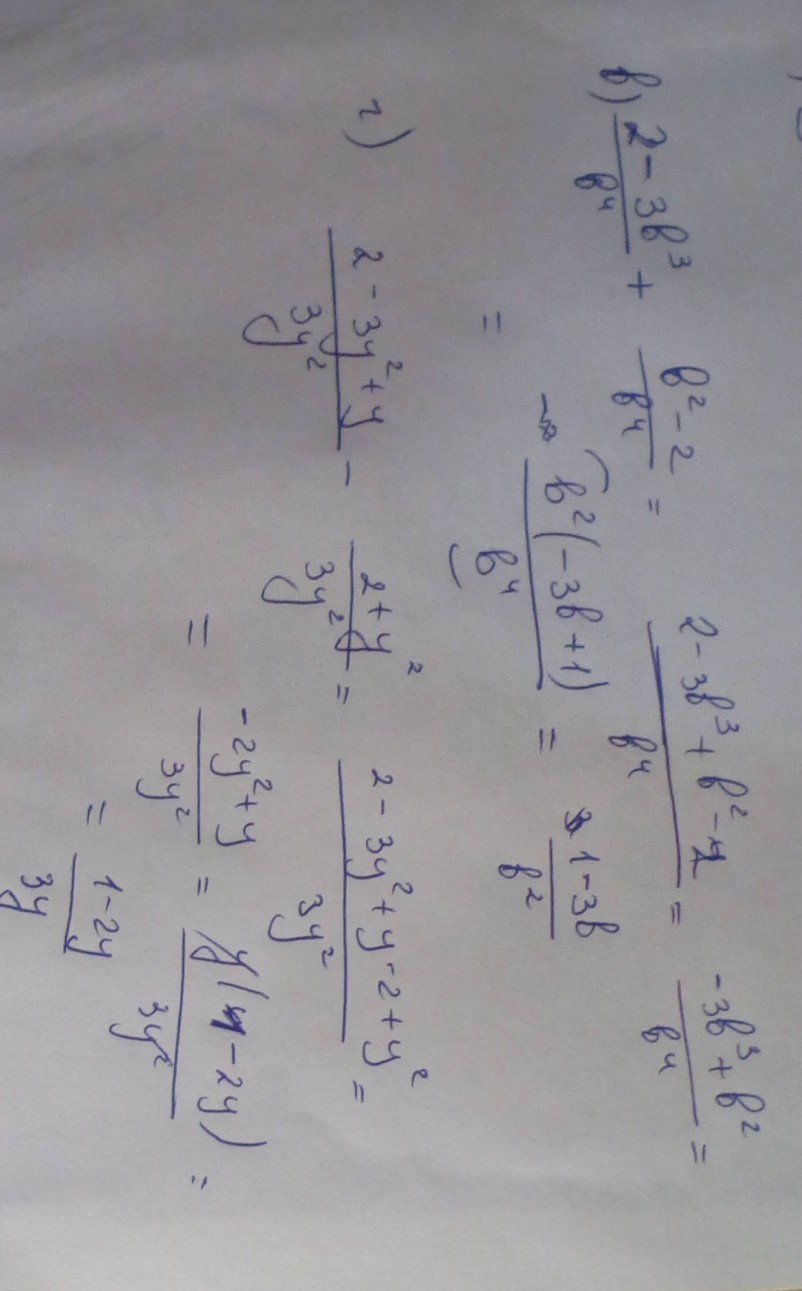 в) (2 - 3b³)/b⁴ + (b² - 2)/b⁴ = (2 - 3b³ + b² - 2)/b⁴ = (-3b³ + b²)/b⁴ =
= b²(-3b + 1)/b⁴ = (1 - 3b)/b²
г) (2 - 3y² + y)/3y² - (2 + y²)/3y² = (2 - 3y² + y - 2 + y²)/3y² =
= (-2y² + y)/3y² = y(1 - 2y)/3y² =
= (1 - 2y)/3y